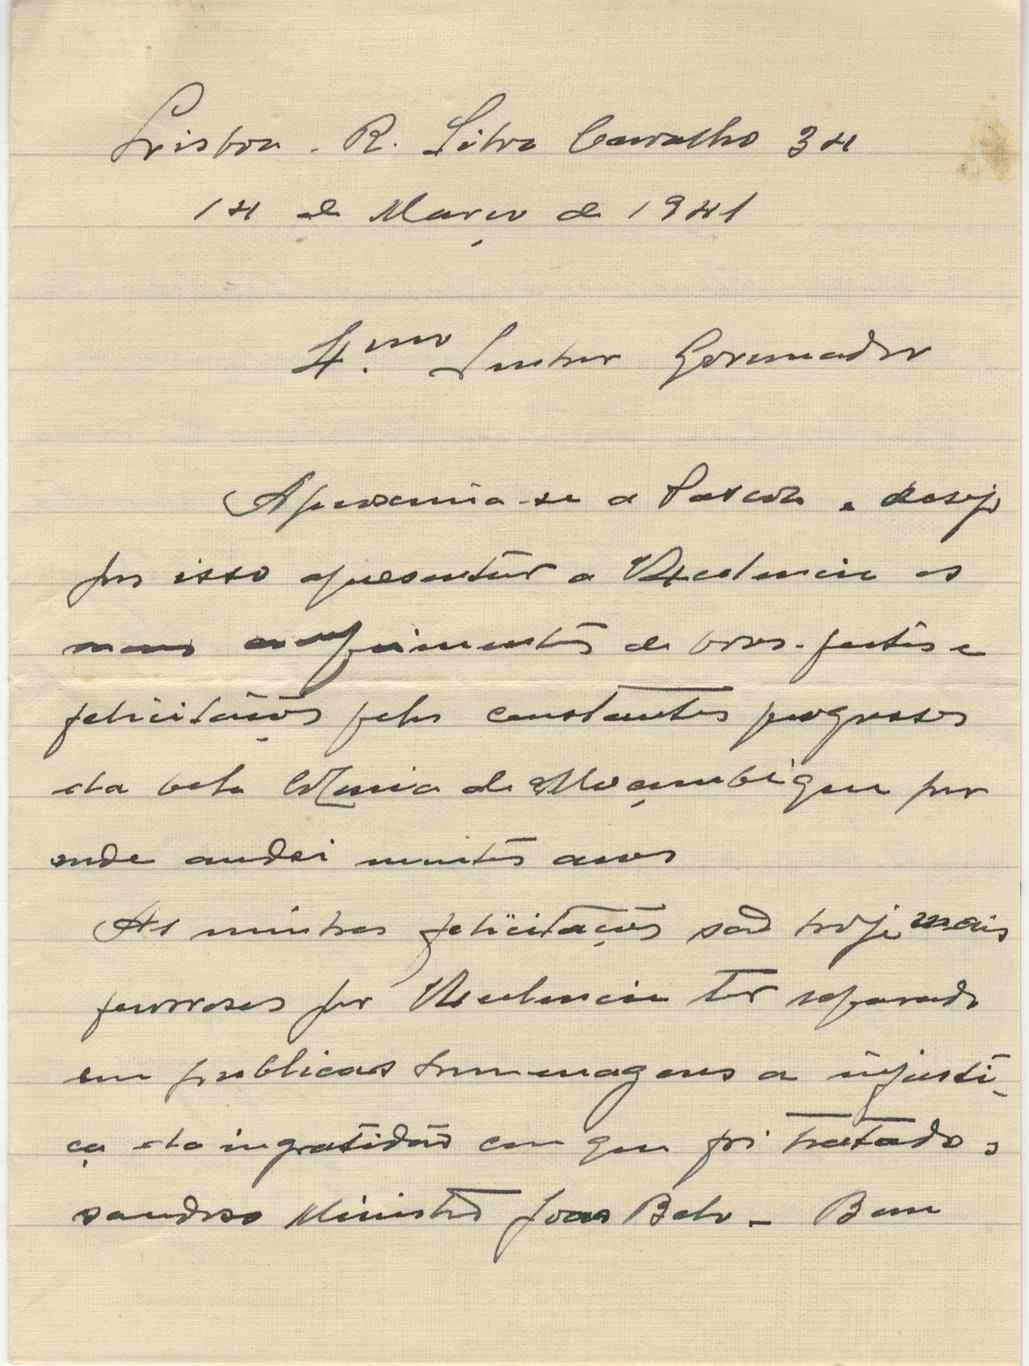 Lisboa. R. Silva Carvalho 34
14 de Março de 1941
Senhor Governador
Aproxima-se a Pascoa e desejo
por isso apresentar a VExcelencia os
meus cumprimentos de boas-festas e
felicitações pelos constantes progressos
da bela Colonia de Moçambique por
onde andei muitos anos
As minhas felicitações são hoje mais
fervorosas por VExcelencia ter reparado
em publicas homenagens a injusti-
ça da ingratidão com que foi tratado o
saudoso Ministro João Belo - Bem